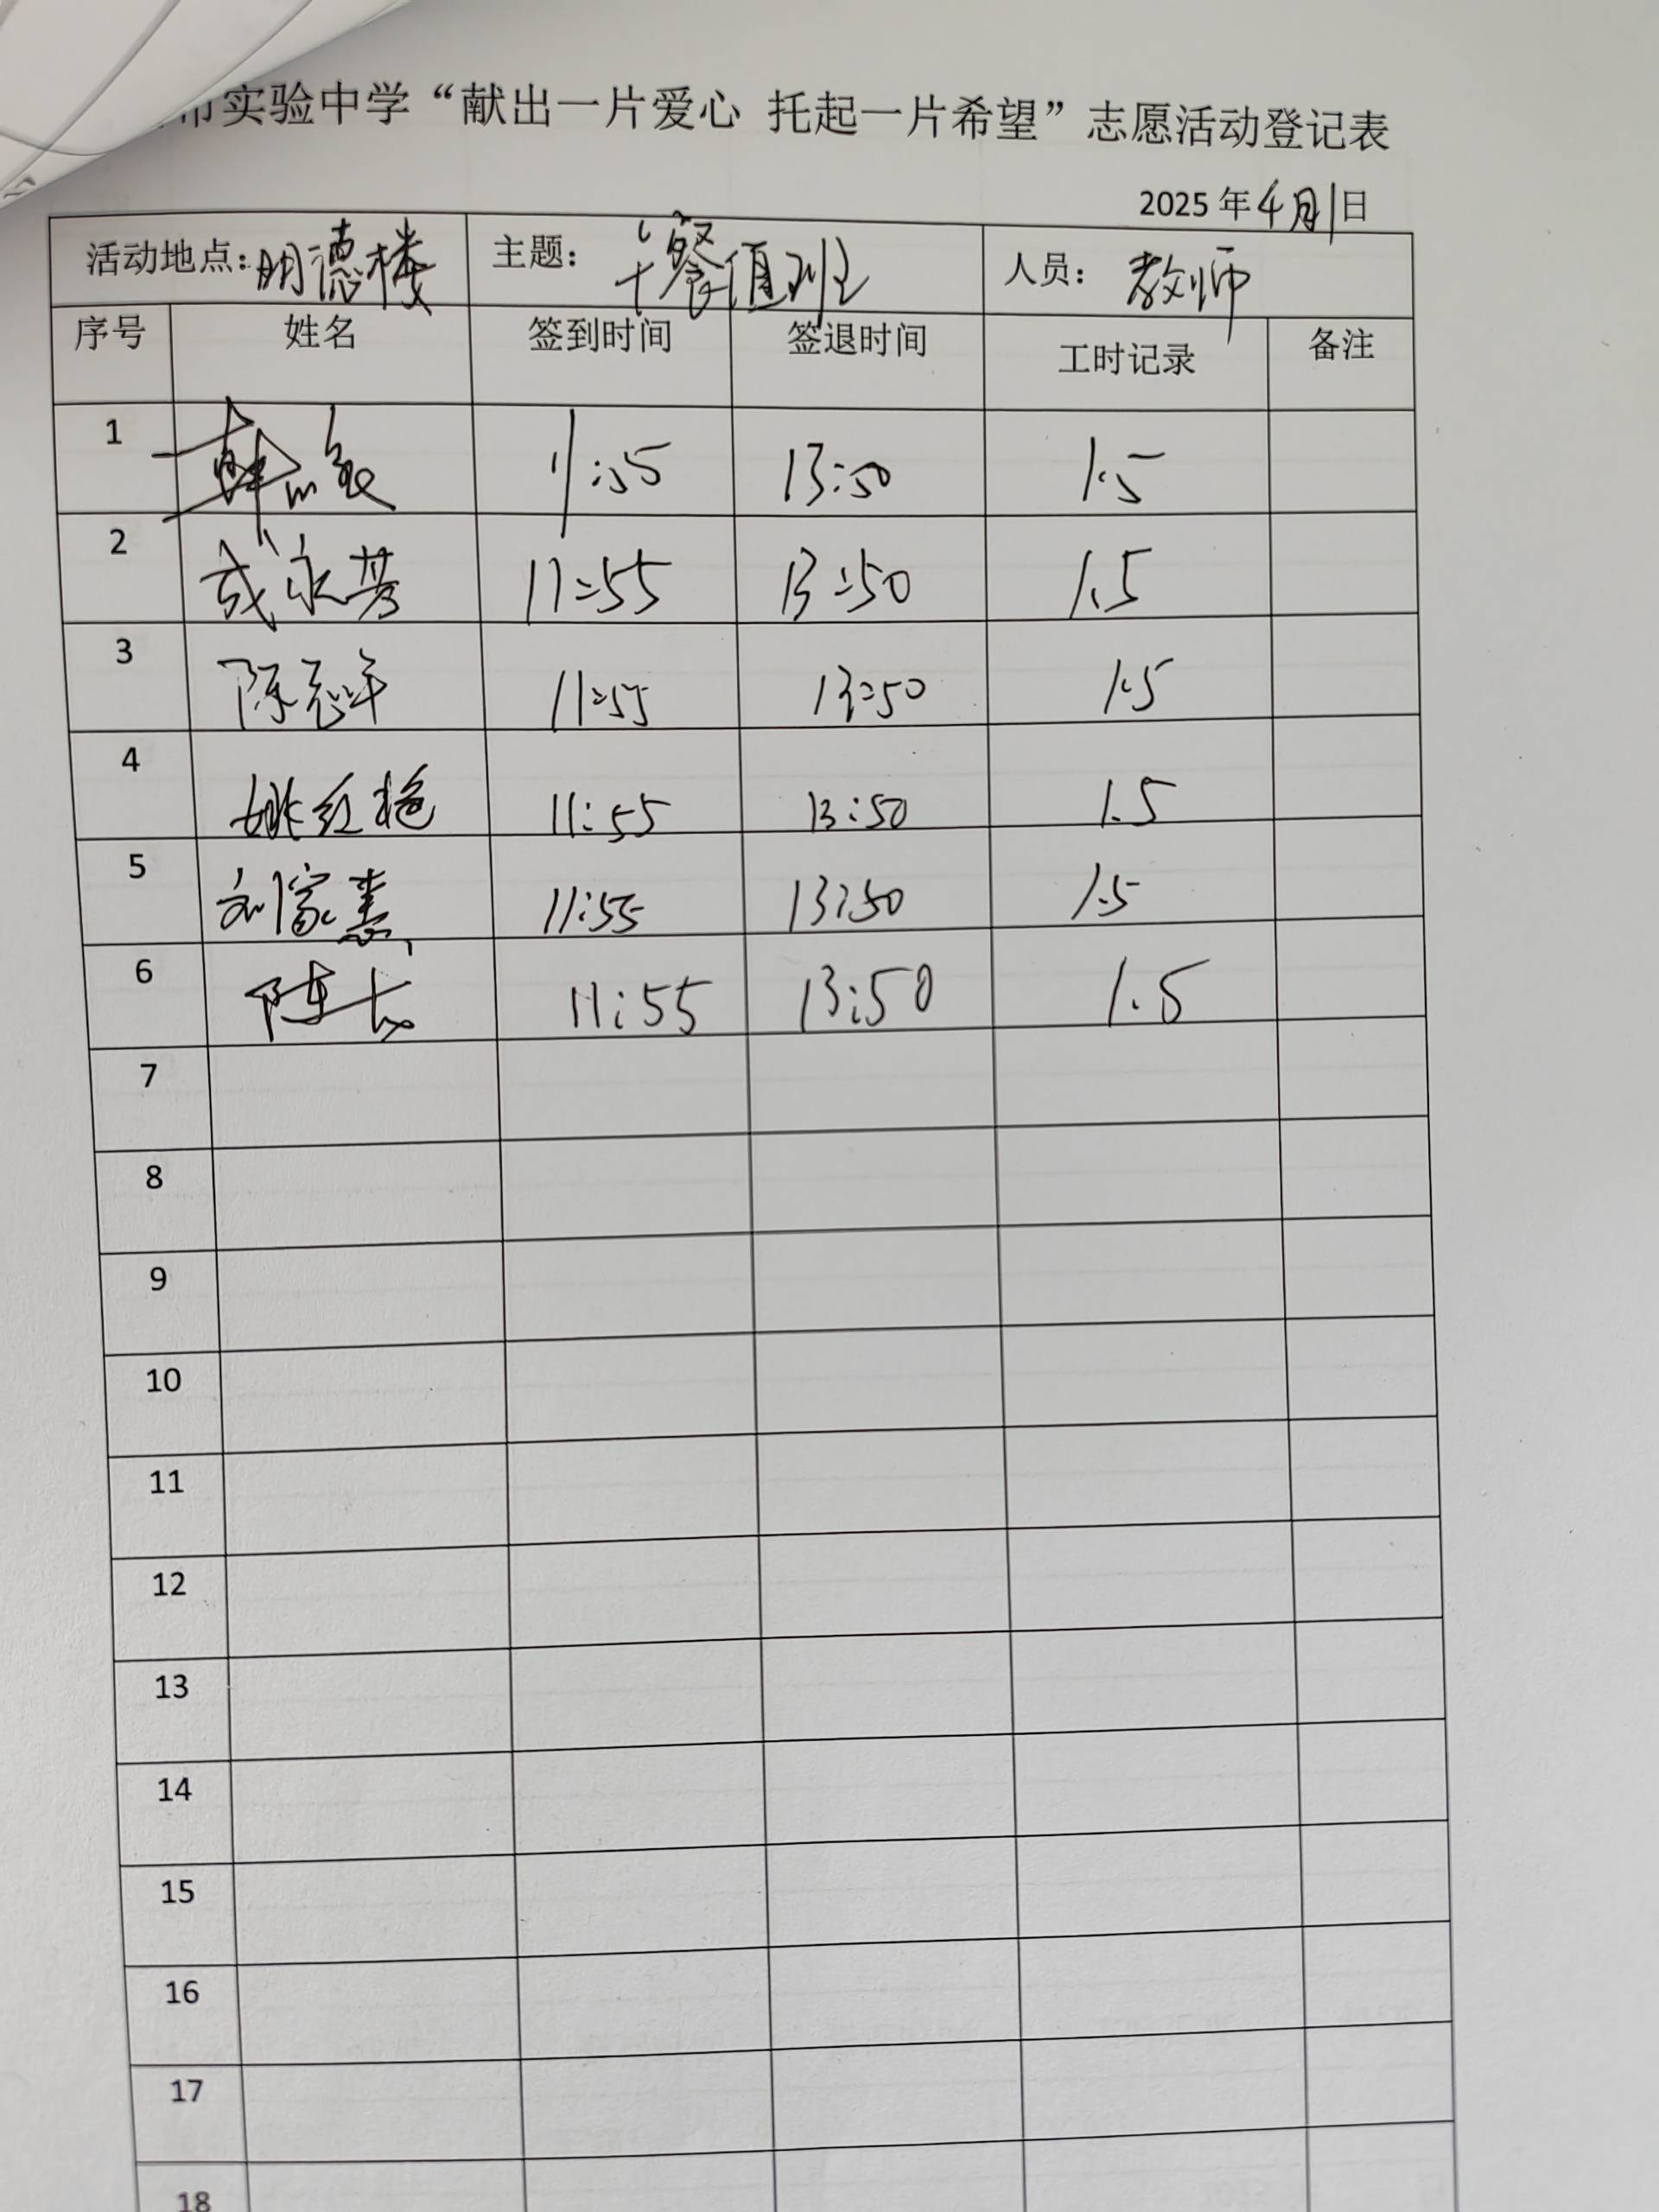 市实验中学“献出一片爱心 托起一片希望”志愿活动登记表
2025年4月1日
活动地点:明德楼 主题: 午餐值班 人员: 教师
序号 姓名 签到时间 签退时间 工时记录 备注
1 韩 11:55 13:50 1.5
2 成永芳 11:55 13:50 1.5
3 陈志军 11:55 13:50 1.5
4 姚红艳 11:55 13:50 1.5
5 刘家慧 11:55 13:50 1.5
6 陈 11:55 13:50 1.5
7
8
9
10
11
12
13
14
15
16
17
18